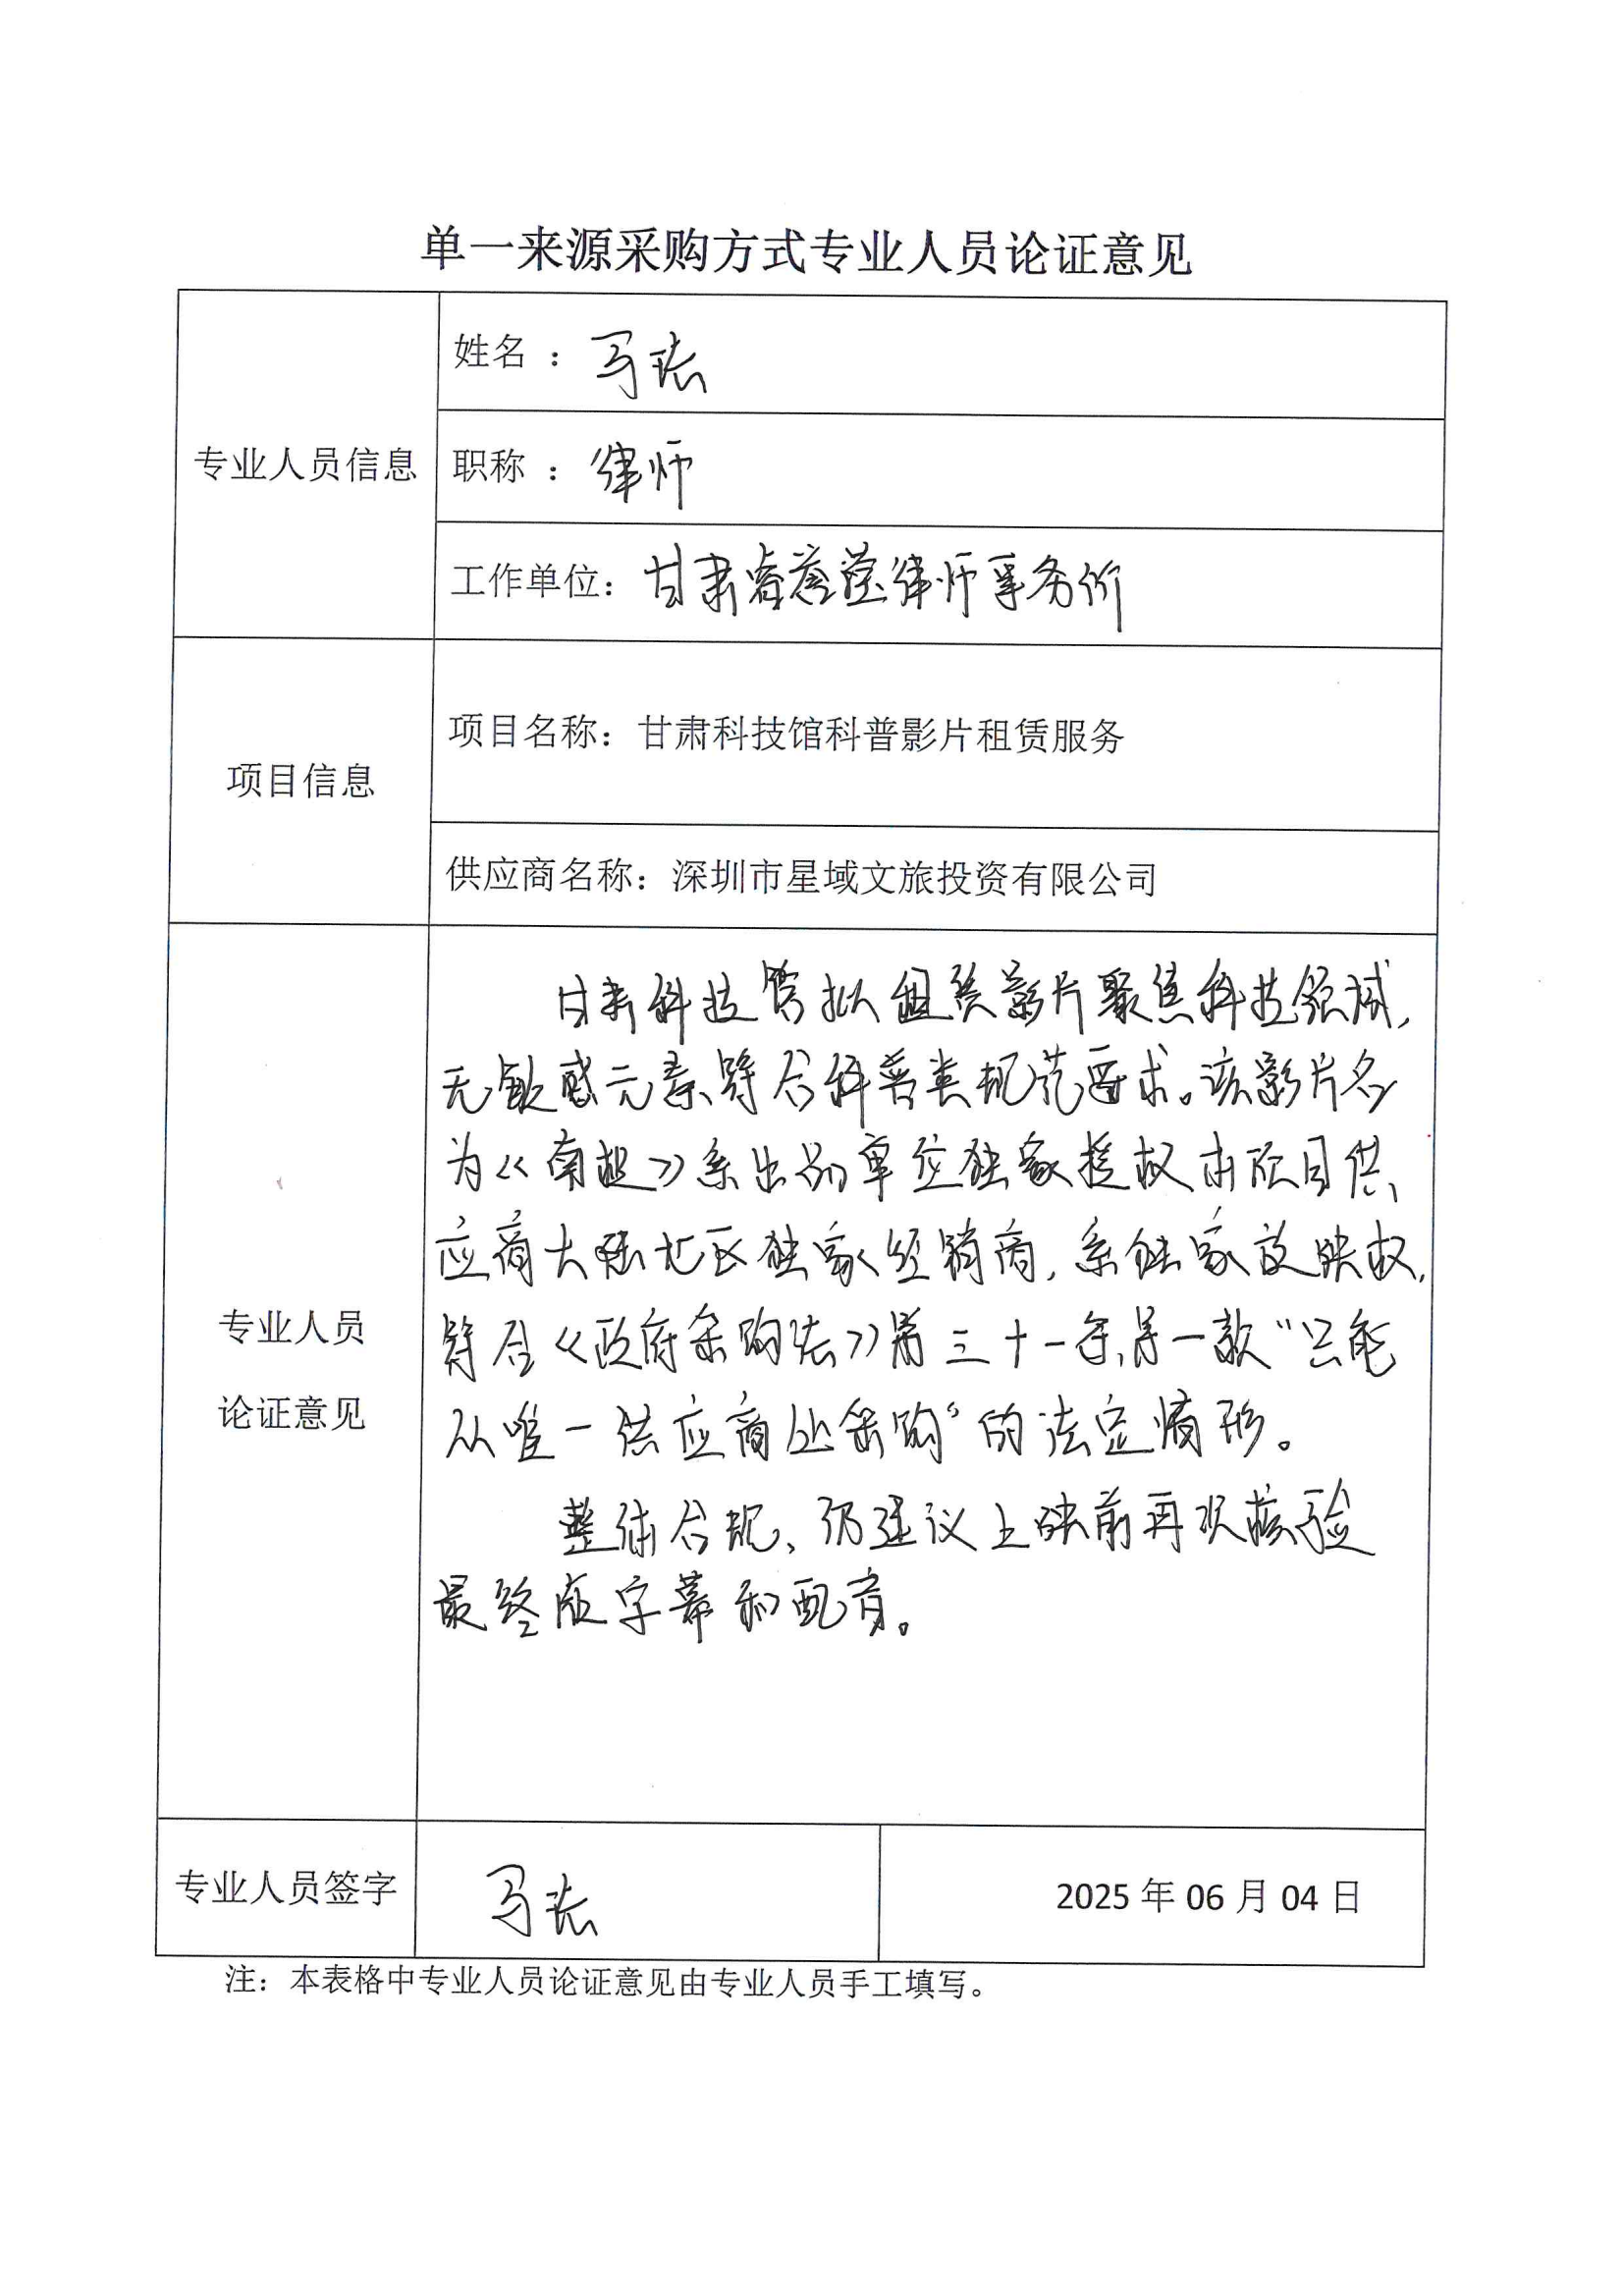 单一来源采购方式专业人员论证意见
专业人员信息
姓名 : 马
职称 : 律师
工作单位: 甘肃睿律师事务所
项目信息
项目名称: 甘肃科技馆科普影片租赁服务
供应商名称: 深圳市星域文旅投资有限公司
专业人员
论证意见
甘肃科技馆拟租赁影片聚焦科技领域,
无敏感元素、符合科普类规范要求。该影片名
为《南极》系出品单位独家授权本项目供
应商大陆地区独家经销商,系独家放映权,
符合《政府采购法》第三十一条、第一款“只能
从唯一供应商处采购”的法定情形。
整体合规、仍建议上映前再次核验
最终版字幕和配音。
专业人员签字
马
2025 年 06 月 04 日
注: 本表格中专业人员论证意见由专业人员手工填写。